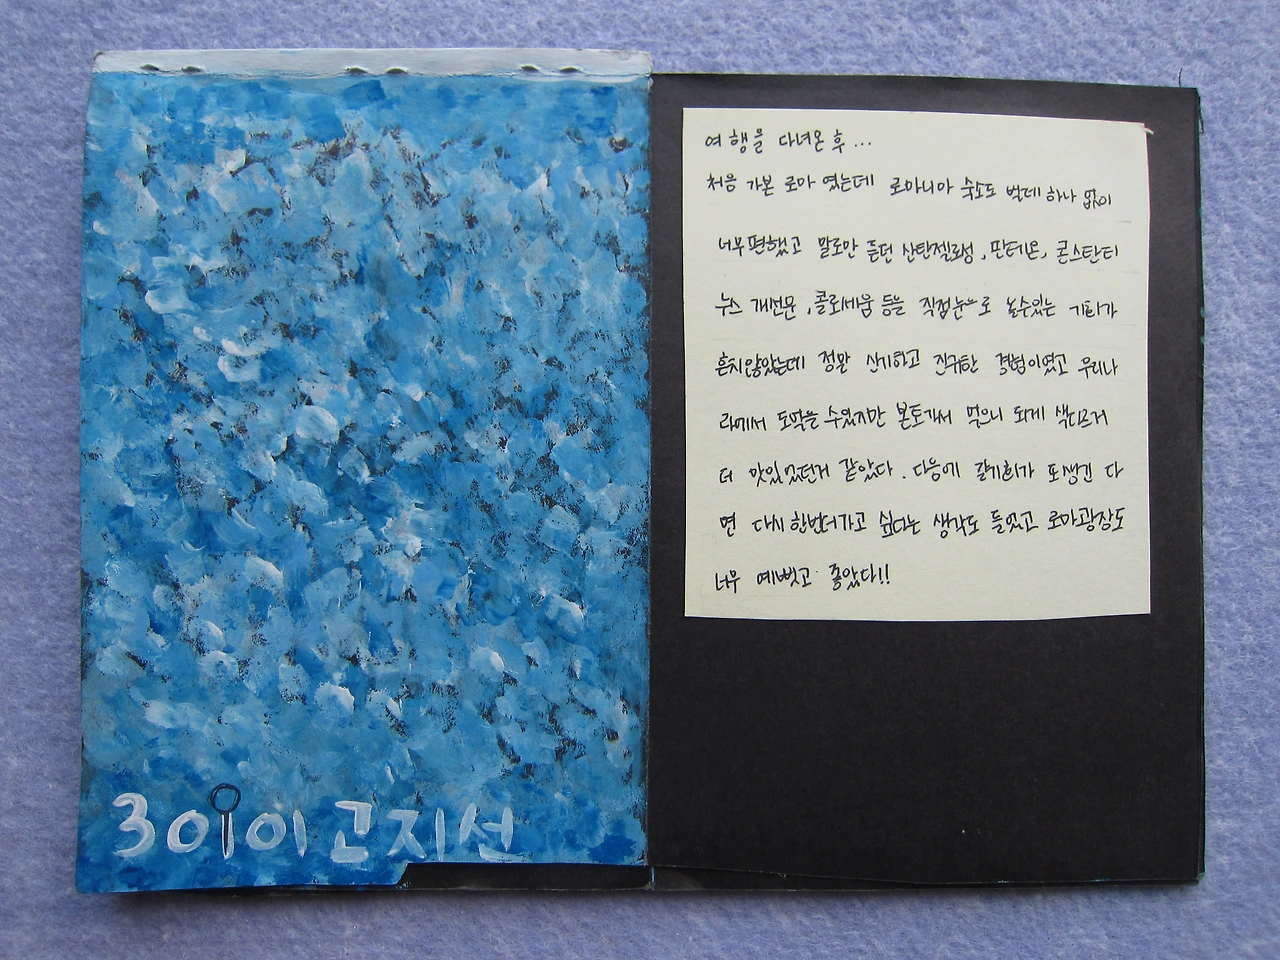 30101 고지선
여행을 다녀온 후...
처음 가본 로마 였는데 로마니아 숙소도 벌레 하나 없이
너무편했고 말로만 듣던 산탄젤로성, 판테온, 콘스탄티
누스 개선문, 콜로세움 등을 직접눈으로 볼수있는 기회가
흔치않았는데 정말 신기하고 진귀한 경험이였고 우리나
라에서 도 먹을수있지만 본토가서 먹으니 되게 색다르거
더 맛있었던거 같았다. 다음에 갈기회가 또생긴 다
면 다시한번더가고 싶다는 생각도 들었고 로마광장도
너무 예뻣고 좋았다!!